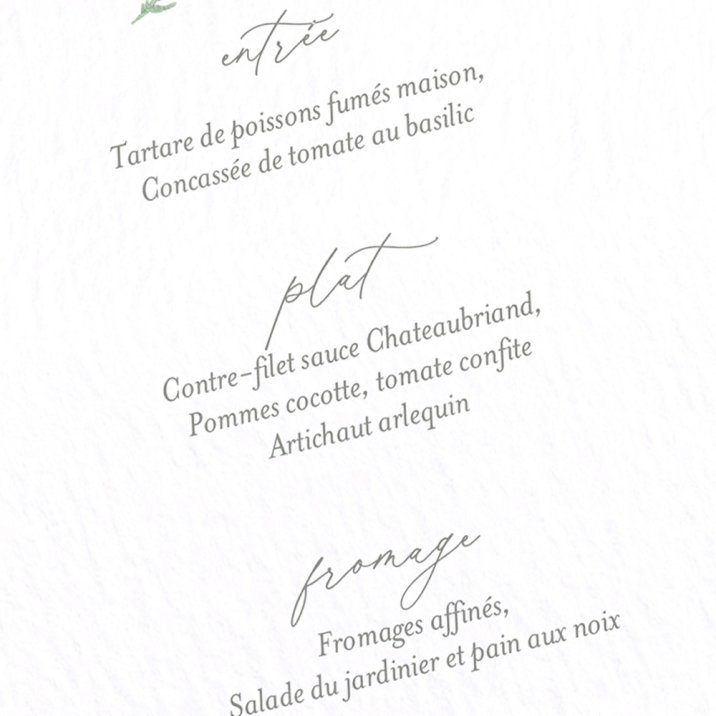 entrée
Tartare de poissons fumés maison,
Concassée de tomate au basilic
plat
Contre-filet sauce Chateaubriand,
Pommes cocotte, tomate confite
Artichaut arlequin
fromage
Fromages affinés,
Salade du jardinier et pain aux noix